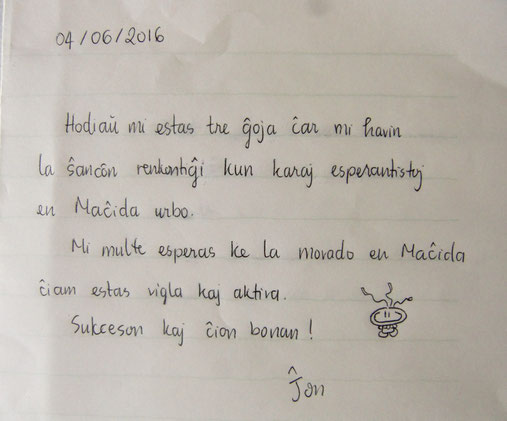 04/06/2016
Hodiaŭ mi estas tre ĝoja ĉar mi havin
la ŝancôn renkontiĝi kun karaj esperantistoj
en Maĉida urbo.
Mi multe esperas ke la movado en Maĉida
ĉiam estas vigla kaj aktiva.
Sukceson kaj ĉion bonan!
Ĵon